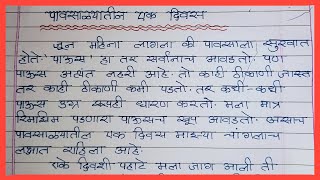 पावसाळ्यातील एक दिवस
जून महिना लागला की पावसाला सुरुवात
होते. 'पाऊस' हा तर सर्वांनाच आवडतो. पण
पाऊस अत्यंत लहरी आहे. तो काही ठिकाणी जास्त
तर काही ठिकाणी कमी पडतो. तर कधी-कधी
पाऊस उग्र रूपही धारण करतो. मला मात्र
रिमझिम पडणारा पाऊसच खूप आवडतो. असाच
पावसाळ्यातील एक दिवस माझ्या चांगलाच
लक्षात राहिला आहे.
एके दिवशी पहाटे मला जाग आली ती